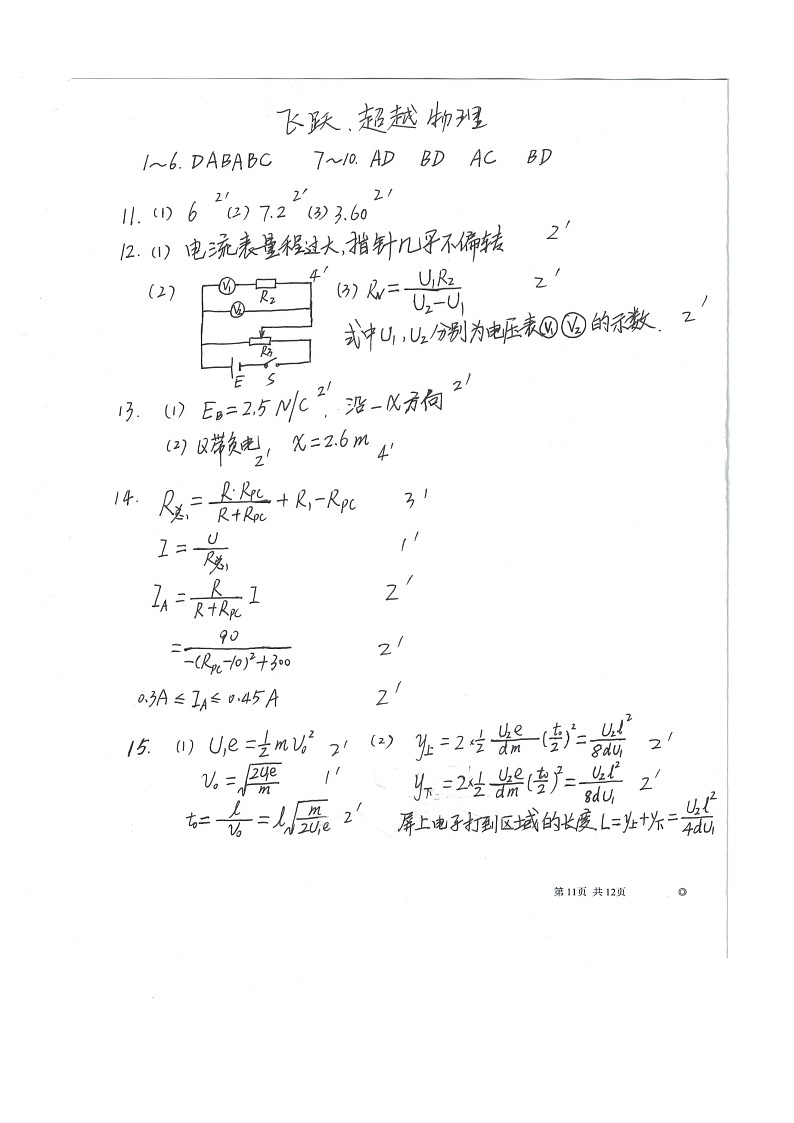 飞跃、超越物理
1~6. DABABC 7~10. AD BD AC BD
11. (1) 6 2' (2) 7.2 2' (3) 3.60 2'
12. (1) 电流表量程过大,指针几乎不偏转 2'
(2) V1 R2 V2 R3 E S 4' (3) Rv = U1R2/(U2-U1) 2'
式中U1,U2分别为电压表V1 V2的示数. 2'
13. (1) EB=2.5 N/C 2'. 沿-x方向 2'
(2) Q带负电 2', x=2.6m 4'
14. R总1 = R·RPC/(R+RPC) + R1-RPC 3'
I = U/R总1 1'
IA = R/(R+RPC) I 2'
= 90/(-(RPC-10)²+300) 2'
0.3A ≤ IA ≤ 0.45A 2'
15. (1) U1e=½mv0² 2' (2) y上=2×½ U2e/dm (t0/2)²=U2l²/8dU1 2'
v0=√(2U1e/m) 1' y下=2×½ U2e/dm (t0/2)²=U2l²/8dU1 2'
t0=l/v0=l√(m/2U1e) 2' 屏上电子打到区域的长度L=y上+y下=U2l²/4dU1
第11页 共12页 ◎